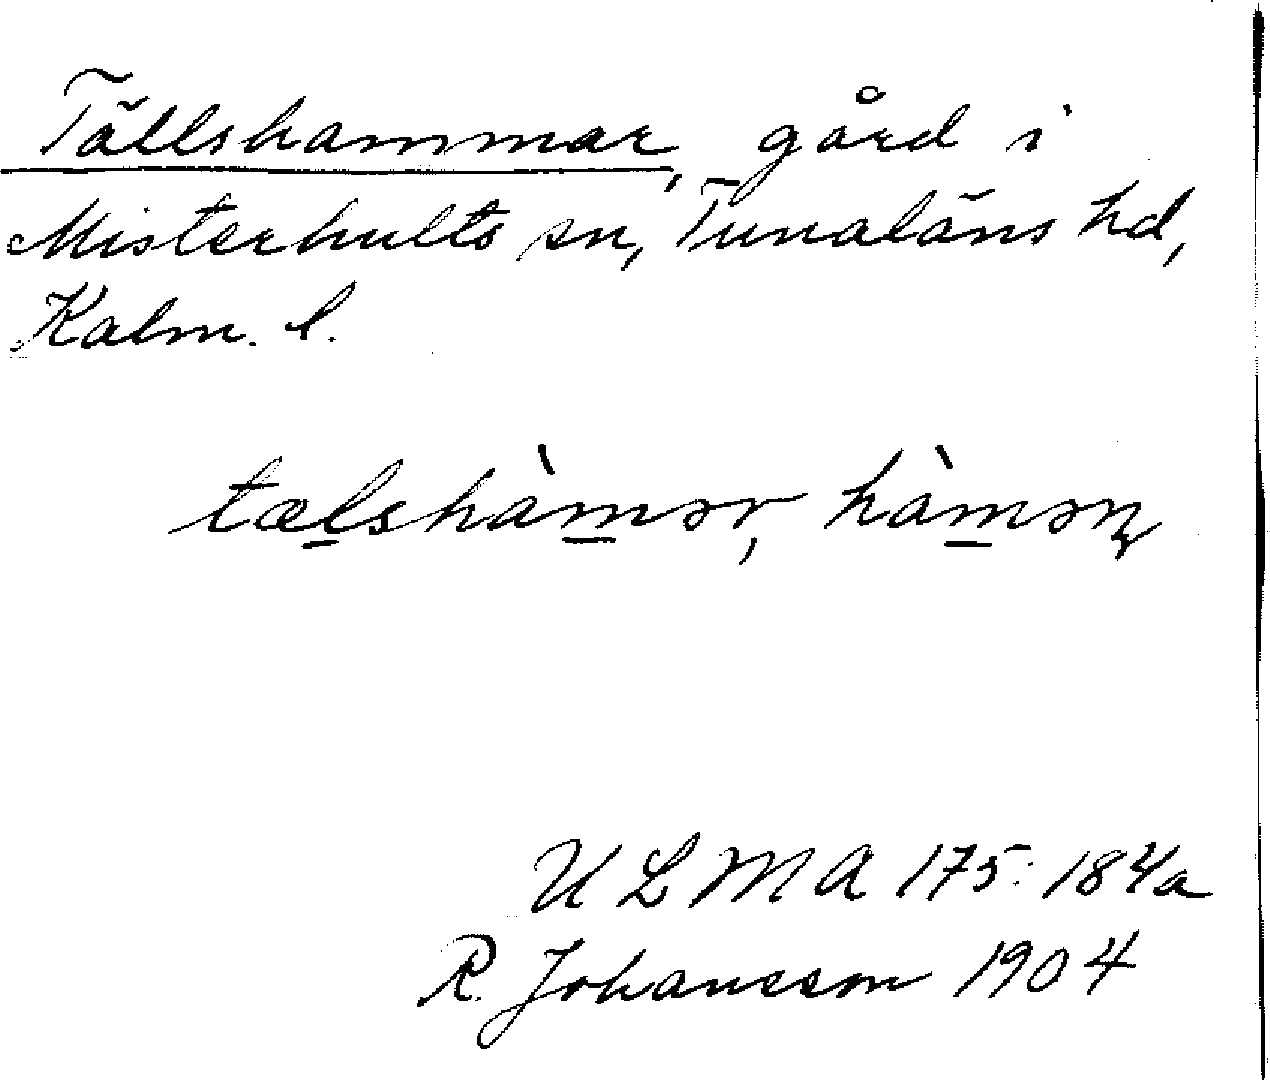 Tällshammar, gård i
Misterhults sn, Tunaläns hd,
Kalm. l.
tæl̲shàm̲ər, hàm̲əɳ
U L M A 175: 184a
R. Johansson 1904